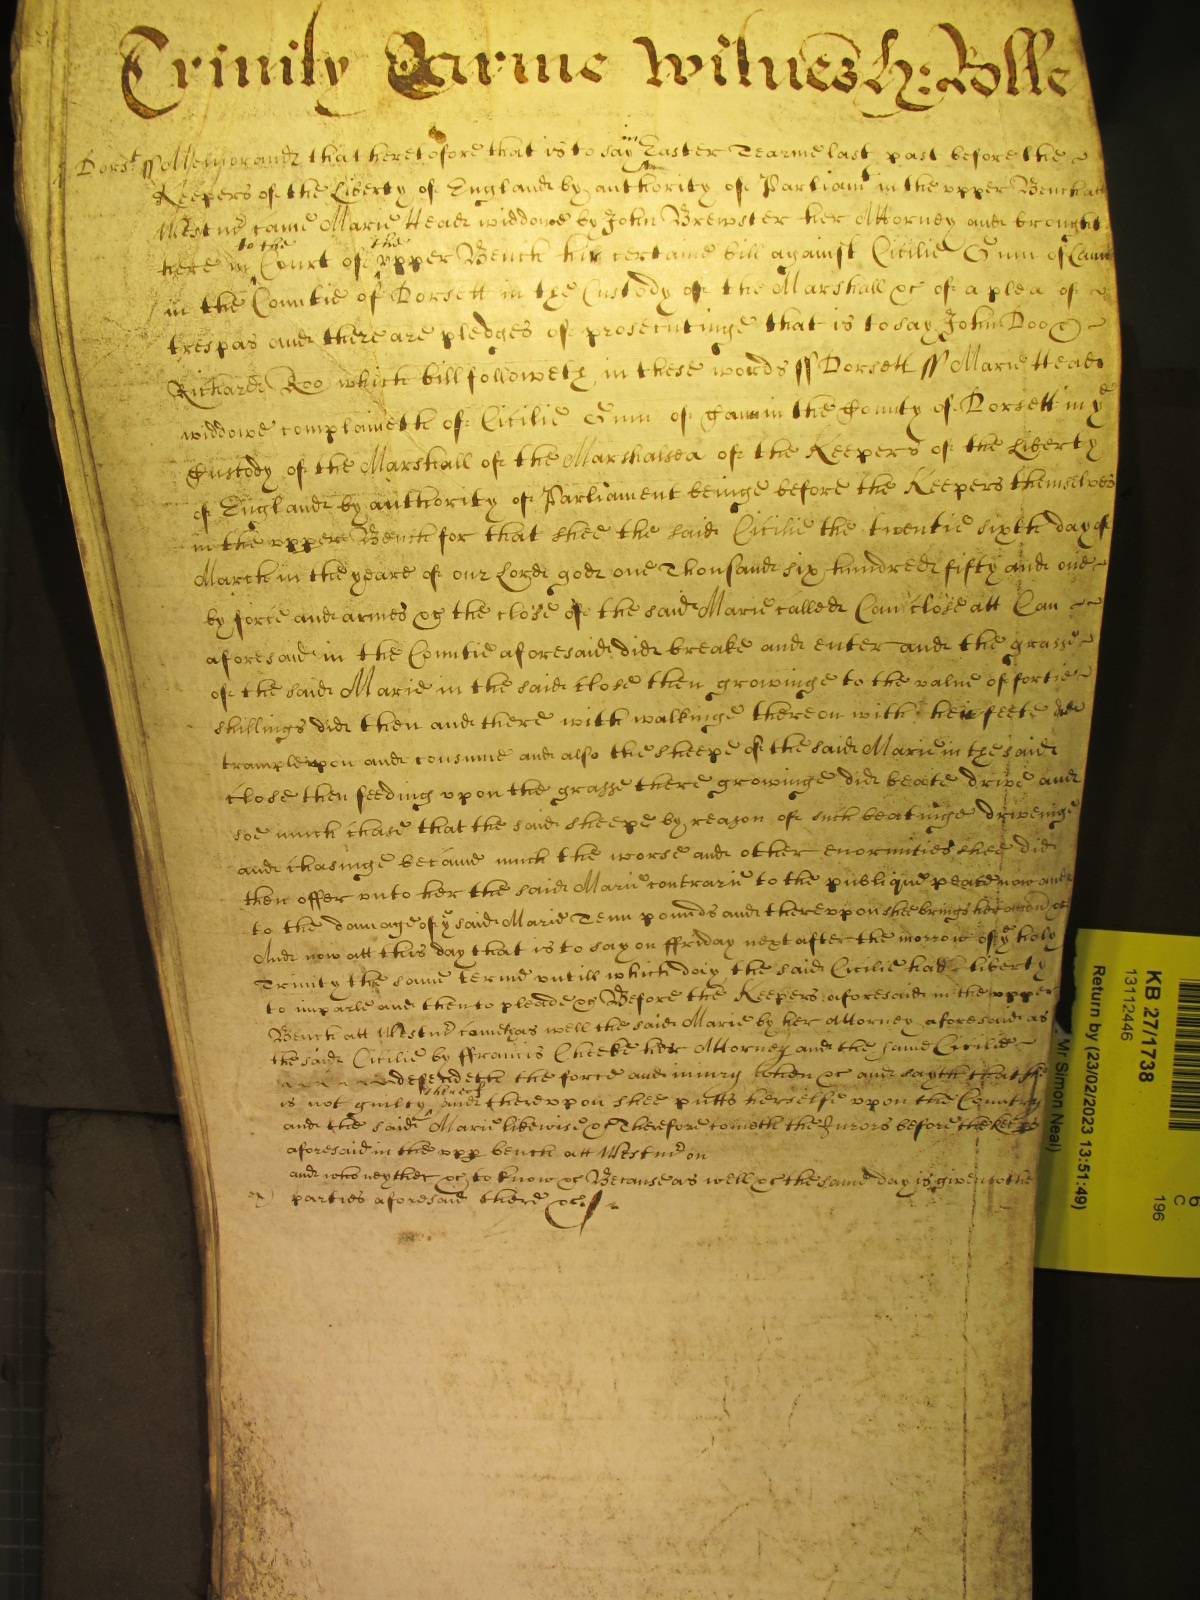 Trinity Tearme Witnes H: Rolle
Dorst ss Memorand that heretofore that is to say in Easter Tearme last past before the
Keepers of the Liberty of England by authority of Parliamt in the upper Bench att
Westmr came Marie Head widdowe by John Brewster her Attorney and brought
here into the Court of the upper Bench her certaine bill against Cicilie Gunn of Cann
in the Countie of Dorsett in the Custody of the Marshall &c of a plea of
trespas and there are pledges of prosecutinge that is to say John Doo &
Richard Roo which bill followeth in these words ss Dorsett ss Marie Head
widdowe complaineth of Cicilie Gunn of Cann in the County of Dorsett in ye
Custody of the Marshall of the Marshalsea of the Keepers of the Liberty
of England by authority of Parliament beinge before the Keepers themselves
in the upper Bench for that shee the said Cicilie the twentie sixth day of
March in the yeare of our Lord god one Thousand six hundred fifty and one
by force and armes &c the close of the said Marie called Cann close att Can
aforesaid in the Countie aforesaid did breake and enter and the grasse
of the said Marie in the said close then growinge to the value of fortie
shillings did then and there with walkinge thereon with her feete
trample upon and consume and also the sheepe of the said Marie in the said
close then feeding upon the grasse there growinge did beate drive and
soe much chase that the said sheepe by reason of such beatinge driveinge
and chasinge became much the worse and other enormities shee did
then offer unto her the said Marie contrarie to the publique peace now and
to the damage of ye said Marie Tenn pounds and thereupon she brings her accon &c
And now att this day that is to say on ffriday next after the morrow of ye holy
Trinity the same terme untill which day the said Cicilie had liberty
to imparle and then to pleade &c Before the Keepers aforesaid in the upper
Bench att Westmr comes as well the said Marie by her Attorney aforesaid as
the said Cicilie by ffrancis Cheeke her Attorney and the same Cicilie
defendeth the force and iniury when &c and sayth that she
is not guilty thereof and thereupon shee putts herselfe upon the Country
and the said Marie likewise &c Therefore cometh the Jurors before the Keeps
aforesaid in the upp bench att Westmr on
and who neyther &c to know &c Because as well &c the same day is given to the
parties aforesaid there &c
KB 27/1738
13112446
Return by (23/02/2023 13:51:49)
Mr Simon Neal)
196
6
C